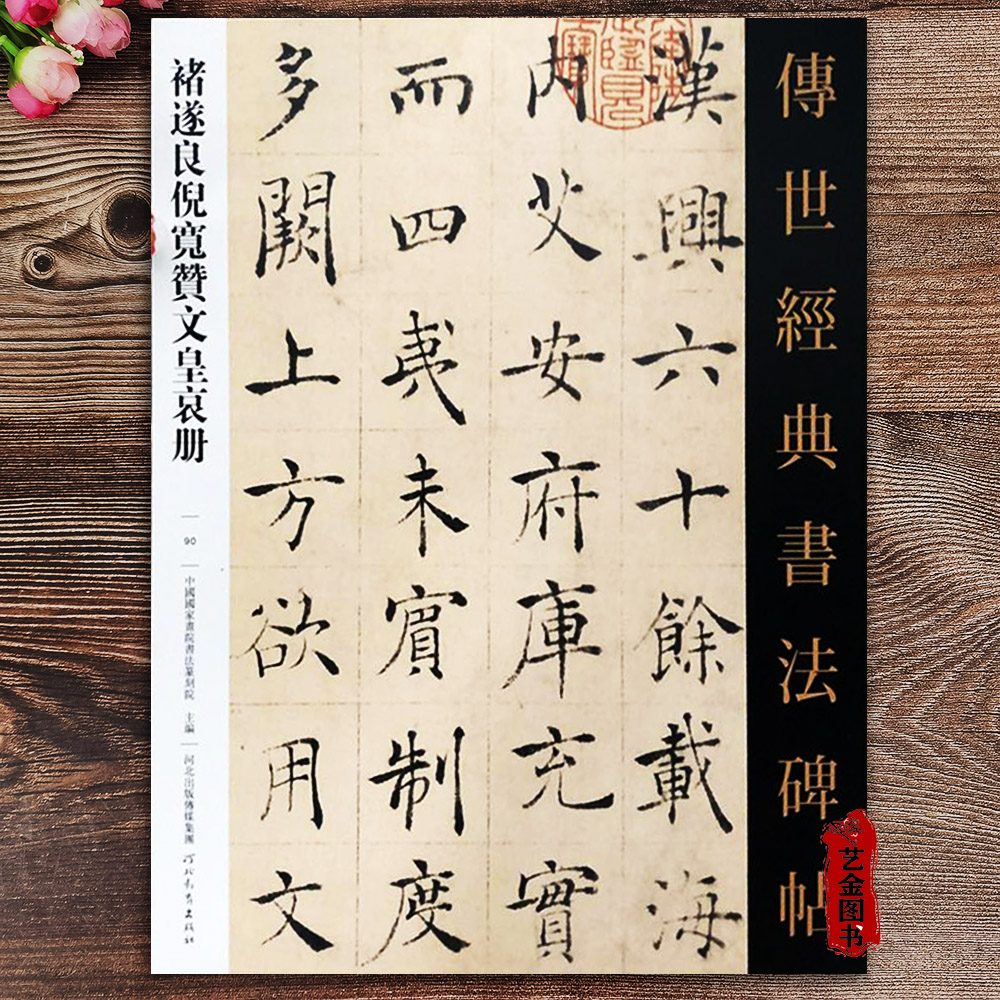 傳世經典書法碑帖
漢興六十餘載海
內艾安府庫充實
而四夷未賓制度
多闕上方欲用文
褚遂良倪寬贊文皇哀册
90
中國國家畫院書法篆刻院 主編
河北出版傳媒集團
河北教育出版社
艺金图书